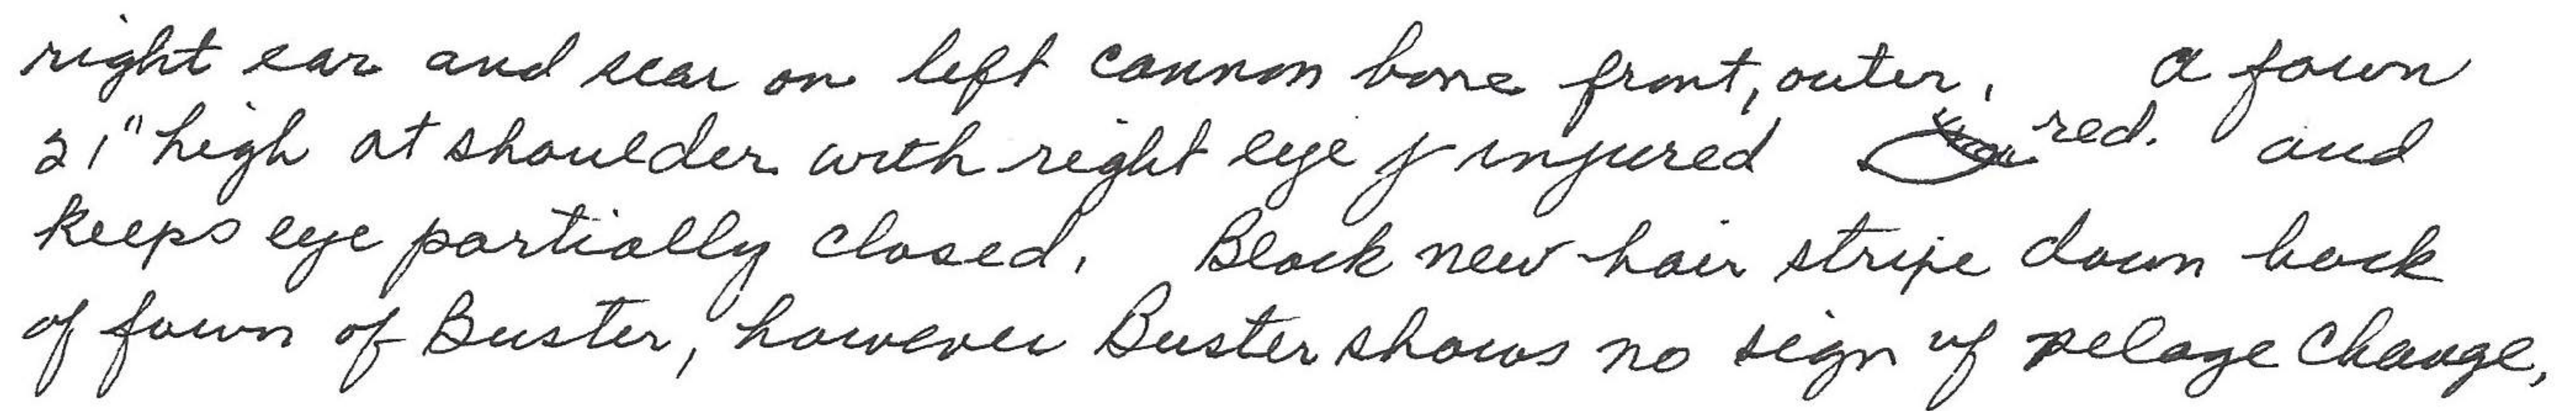 right ear and scar on left cannon bone front, outer. A fawn
21" high at shoulder with right eye injured red. and
keeps eye partially closed. Black new hair stripe down back
of fawn of Buster, however Buster shows no sign of pelage change,